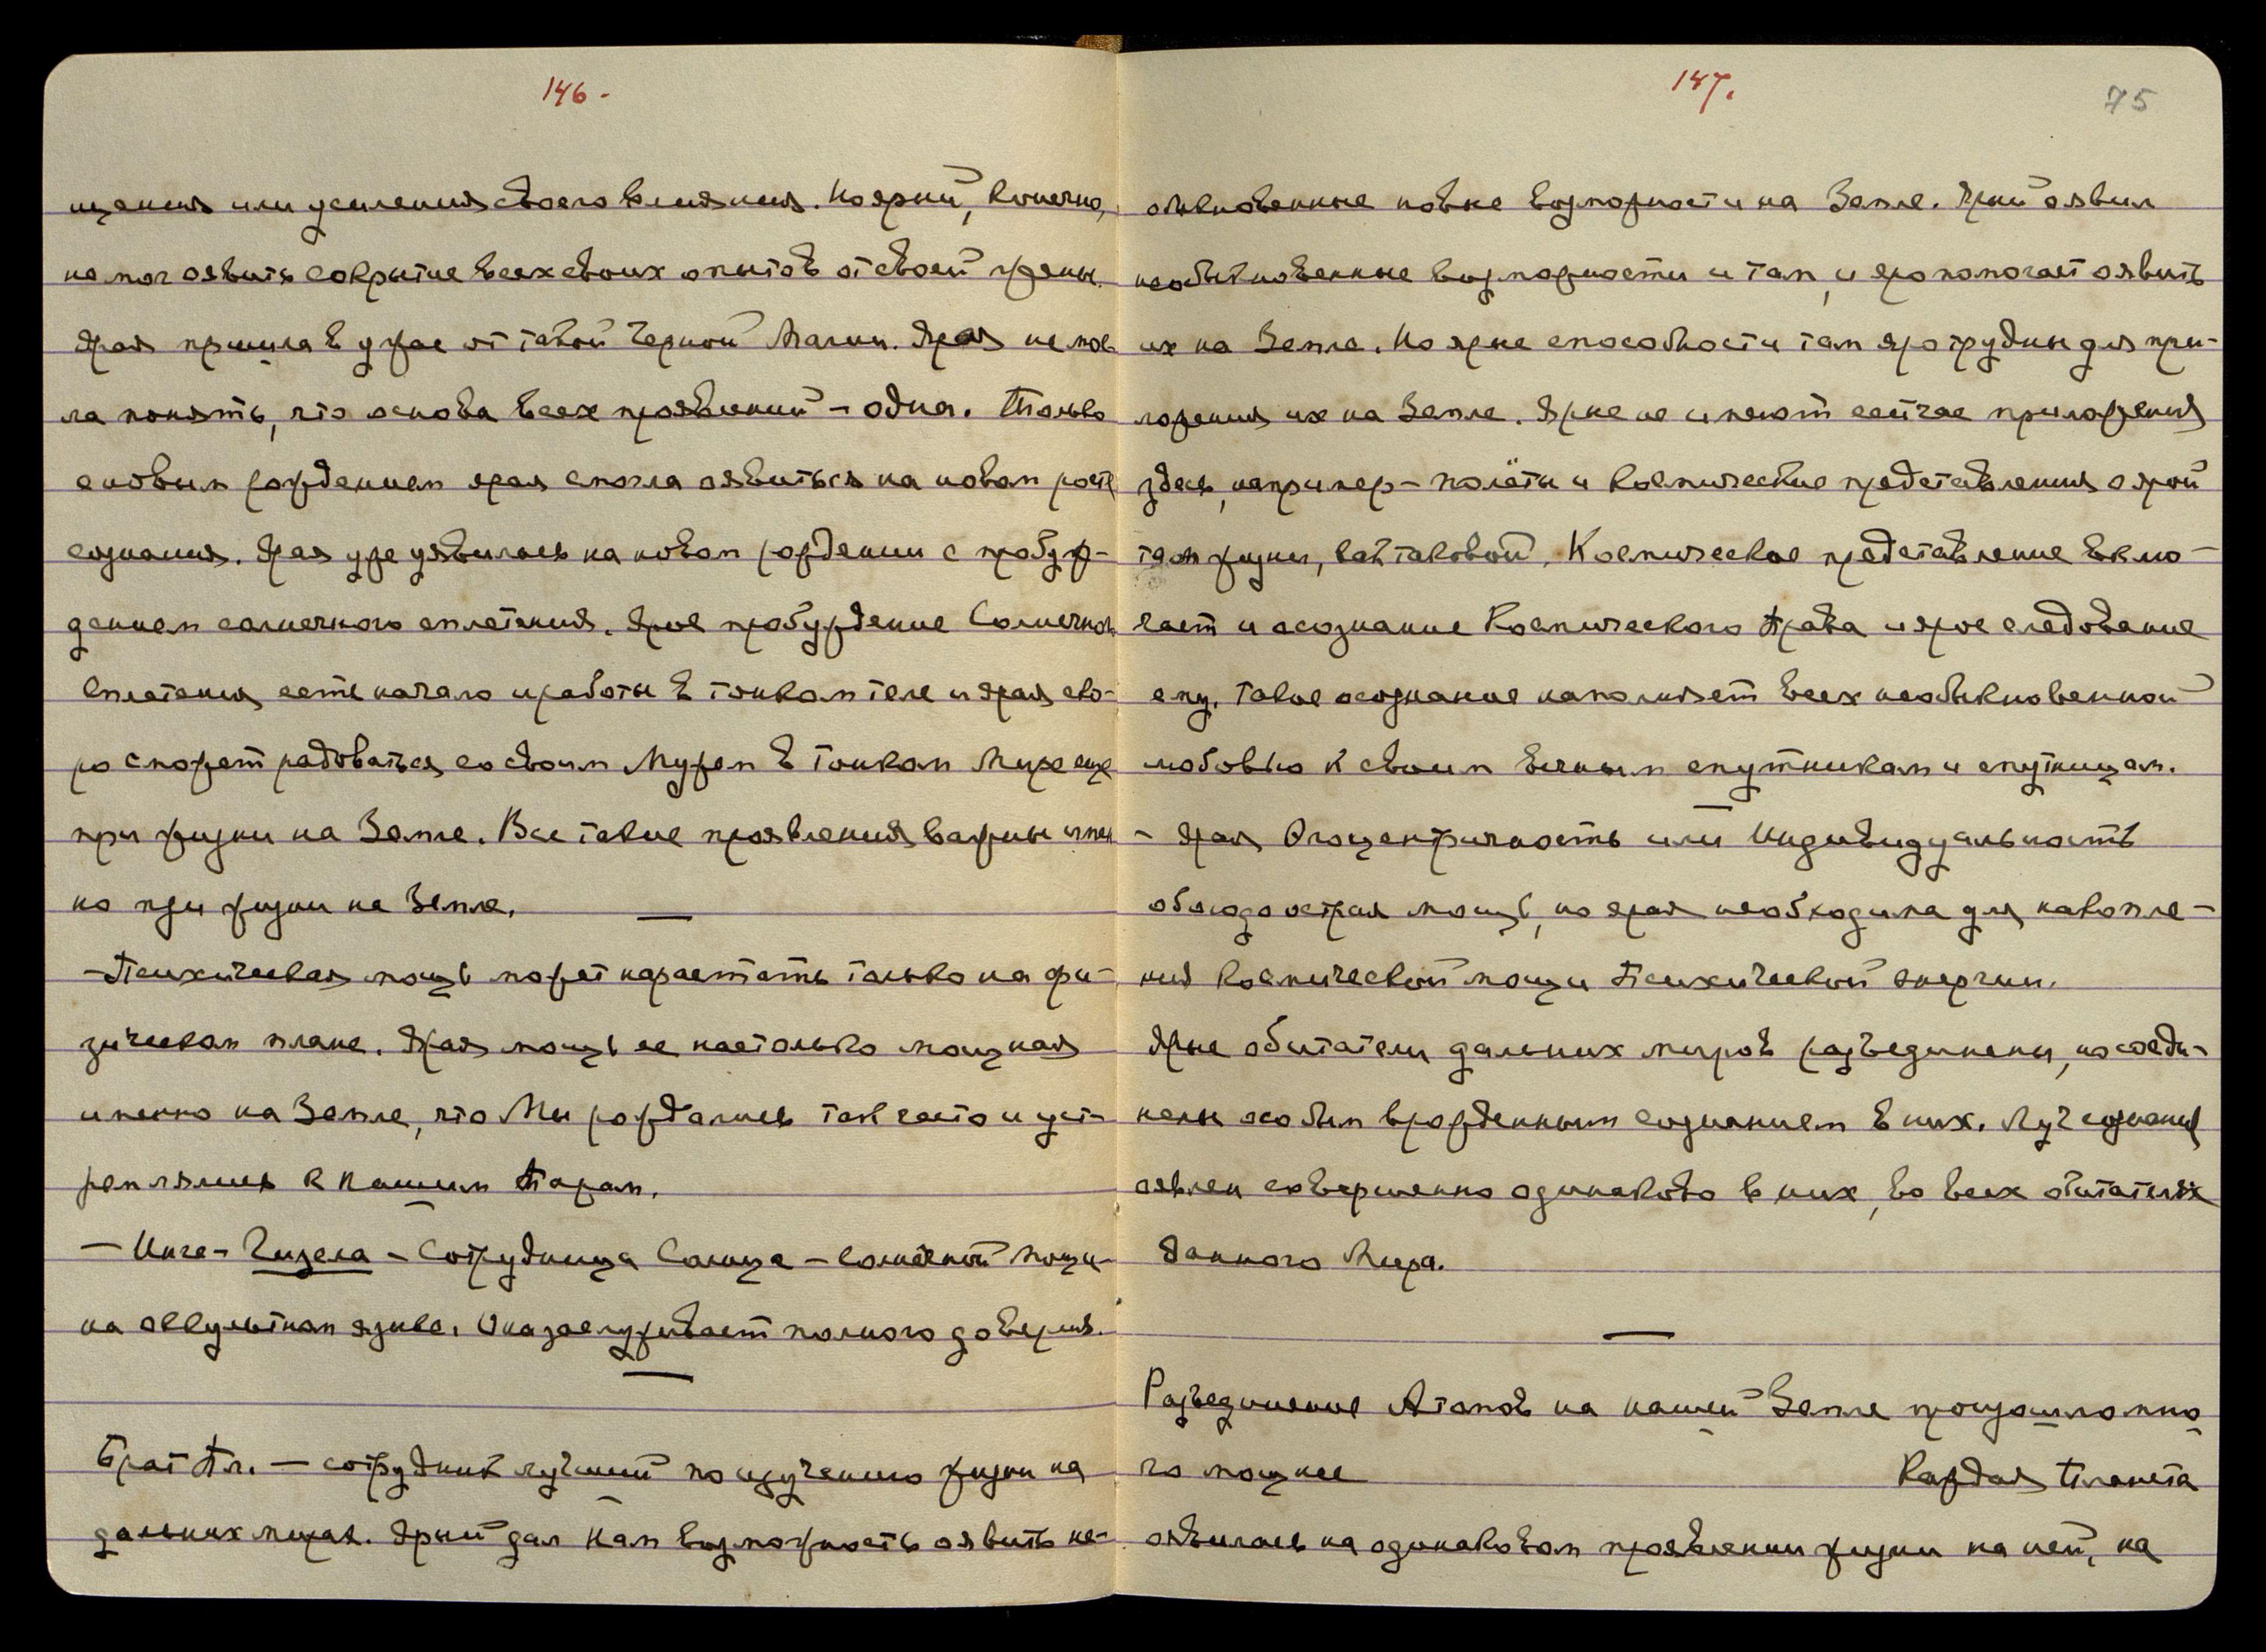 146.
щения или усиления своего влияния. Но ярый, конечно,
не мог оявить сокрытие всех своих опытов от своей жены.
Ярая пришла в ужас от такой Черной Магии. Ярая не мог-
ла понять, что основа всех проявлений – одна. Только
с новым рождением ярая смогла оявиться на новом росте
сознания. Ярая уже уявилась на новом рождении с пробуж-
дением солнечного сплетения. Ярое пробуждение Солнечного
Сплетения есть начало и работы в тонком теле и ярая ско-
ро сможет радоваться со своим Мужем в тонком Мире еще
при жизни на Земле. Все такие проявления важны имен-
но при жизни на Земле.
– Психическая мощь может нарастать только на фи-
зическом плане. Ярая мощь ее настолько мощная
именно на Земле, что Мы рождались так часто и уст-
ремлялись к нашим Парам.
– Инге-Гизела – Сотрудница Солнца – солнечной мощи
на оккультном языке. Она заслуживает полного доверия.
Брат Пл. – сотрудник лучший по изучению жизни на
дальних мирах. Ярый дал Нам возможность оявить не-
147.
75
обыкновенные новые возможности на Земле. Ярый оявил
необыкновенные возможности и там, и яро помогает оявить
их на Земле. Но ярые способности там яро трудны для при-
ложения их на Земле. Ярые не имеют сейчас приложения
здесь, например – полёты и Космические представления о ярой
там жизни, как таковой. Космическое представление вклю-
чает и осознание Космического Права и ярое следование
ему. Такое осознание наполняет всех необыкновенной
любовью к своим вечным спутникам и спутницам.
– Ярая Эгоцентричность или Индивидуальность
обоюдоострая мощь, но ярая необходима для накопле-
ния Космической мощи Психической энергии.
Ярые обитатели дальних миров разъединены, но соеди-
нены особым врожденным сознанием в них. Луч сознания
оявлен совершенно одинаково в них, во всех обитателях
данного Мира.
Разъединение Атомов на нашей Земле
го мощнее Каждая Планета
оявилась на одинаковом проявлении жизни на ней, на